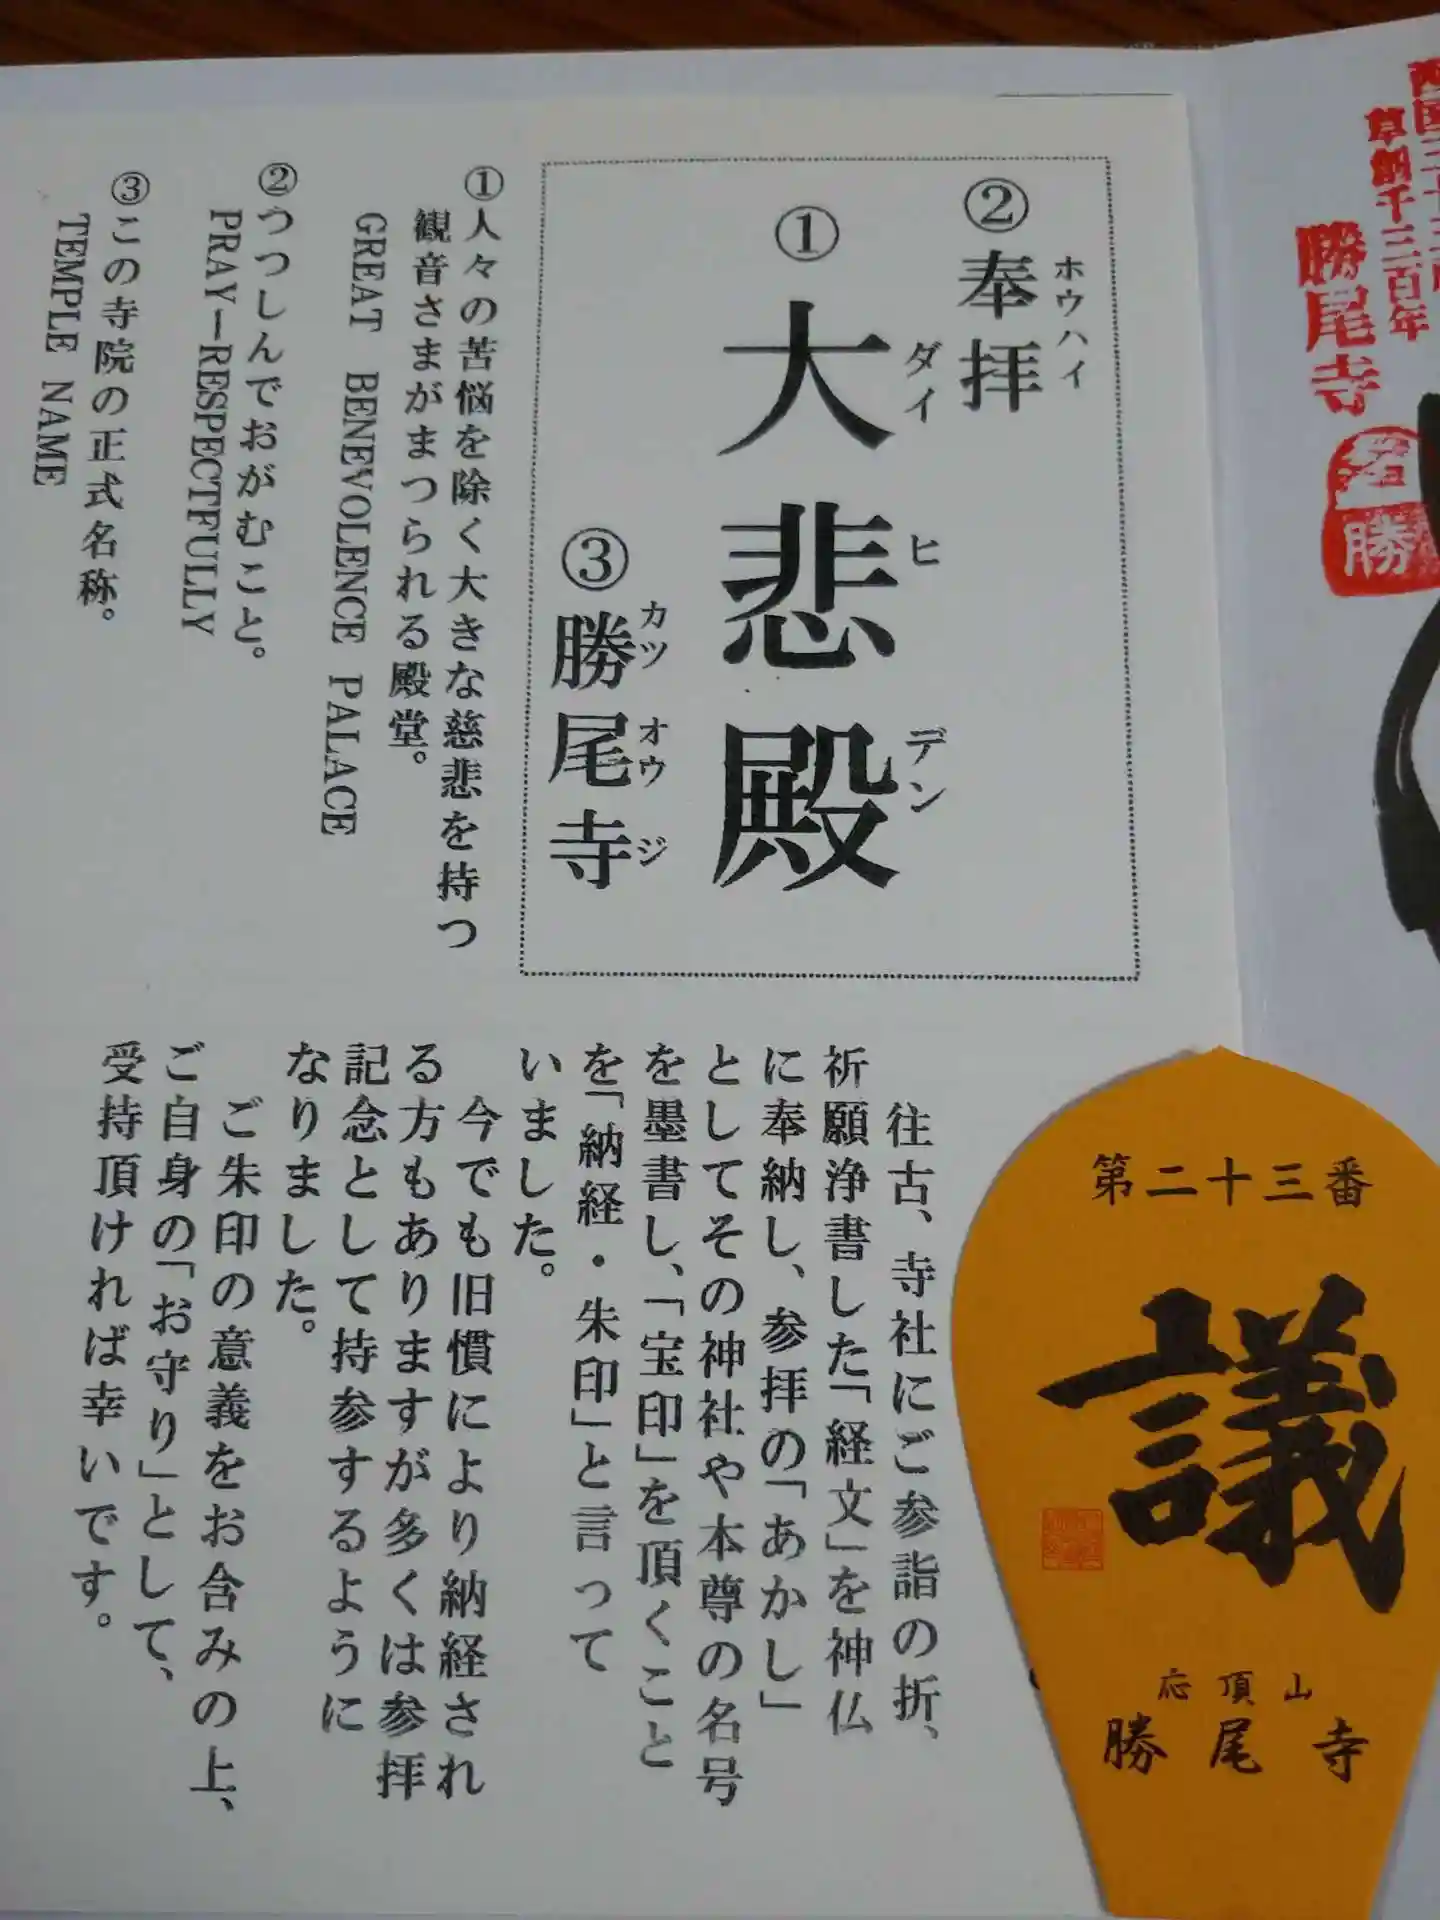 西国三十三所
草創千三百年
勝尾寺
勝
②奉拝
ホウハイ
①大悲殿
ダイヒデン
③勝尾寺
カツオウジ
①人々の苦悩を除く大きな慈悲を持つ
観音さまがまつられる殿堂。
GREAT BENEVOLENCE PALACE
②つつしんでおがむこと。
PRAY－RESPECTFULLY
③この寺院の正式名称。
TEMPLE NAME
往古、寺社にご参詣の折、
祈願浄書した「経文」を神仏
に奉納し、参拝の「あかし」
としてその神社や本尊の名号
を墨書し、「宝印」を頂くこと
を「納経・朱印」と言って
いました。
今でも旧慣により納経され
る方もありますが多くは参拝
記念として持参するように
なりました。
ご朱印の意義をお含みの上、
ご自身の「お守り」として、
受持頂ければ幸いです。
第二十三番
議
応頂山
勝尾寺